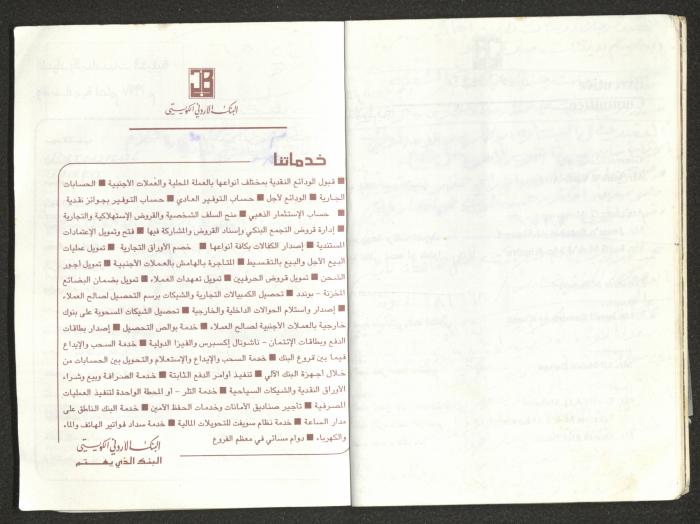 البنك الأردني الكويتي
خدماتنا
■ قبول الودائع النقدية بمختلف أنواعها بالعملة المحلية والعملات الأجنبية ■ الحسابات
الجارية ■ الودائع لأجل ■ حساب التوفير العادي ■ حساب التوفير بجوائز نقدية
■ حساب الإستثمار الذهبي ■ منح السلف الشخصية والقروض الإستهلاكية والتجارية
■ إدارة قروض التجمع البنكي وإسناد القروض والمشاركة فيها ■ فتح وتمويل الإعتمادات
المستندية ■ إصدار الكفالات بكافة أنواعها ■ خصم الأوراق التجارية ■ تمويل عمليات
البيع الآجل والبيع بالتقسيط ■ المتاجرة بالهامش بالعملات الأجنبية ■ تمويل أجور
الشحن ■ تمويل قروض الحرفيين ■ تمويل تعهدات العملاء ■ تمويل بضمان البضائع
المخزنة - بوندد ■ تحصيل الكمبيالات التجارية والشيكات برسم التحصيل لصالح العملاء
■ إصدار واستلام الحوالات الداخلية والخارجية ■ تحصيل الشيكات المسحوبة على بنوك
خارجية بالعملات الأجنبية لصالح العملاء ■ خدمة بوالص التحصيل ■ إصدار بطاقات
الدفع وبطاقات الإئتمان - ناشونال إكسبرس والفيزا الدولية ■ خدمة السحب والإيداع
فيما بين فروع البنك ■ خدمة السحب والإيداع والإستعلام والتحويل بين الحسابات من
خلال أجهزة البنك الآلي ■ تنفيذ أوامر الدفع الثابتة ■ خدمة الصرافة وبيع وشراء
الأوراق النقدية والشيكات السياحية ■ خدمة التلر - أو المحطة الواحدة لتنفيذ العمليات
المصرفية ■ تأجير صناديق الأمانات وخدمات الحفظ الأمين ■ خدمة البنك الناطق على
مدار الساعة ■ خدمة نظام سويفت للتحويلات المالية ■ خدمة سداد فواتير الهاتف والماء
والكهرباء ■ دوام مسائي في معظم الفروع
البنك الأردني الكويتي
البنك الذي يهتم